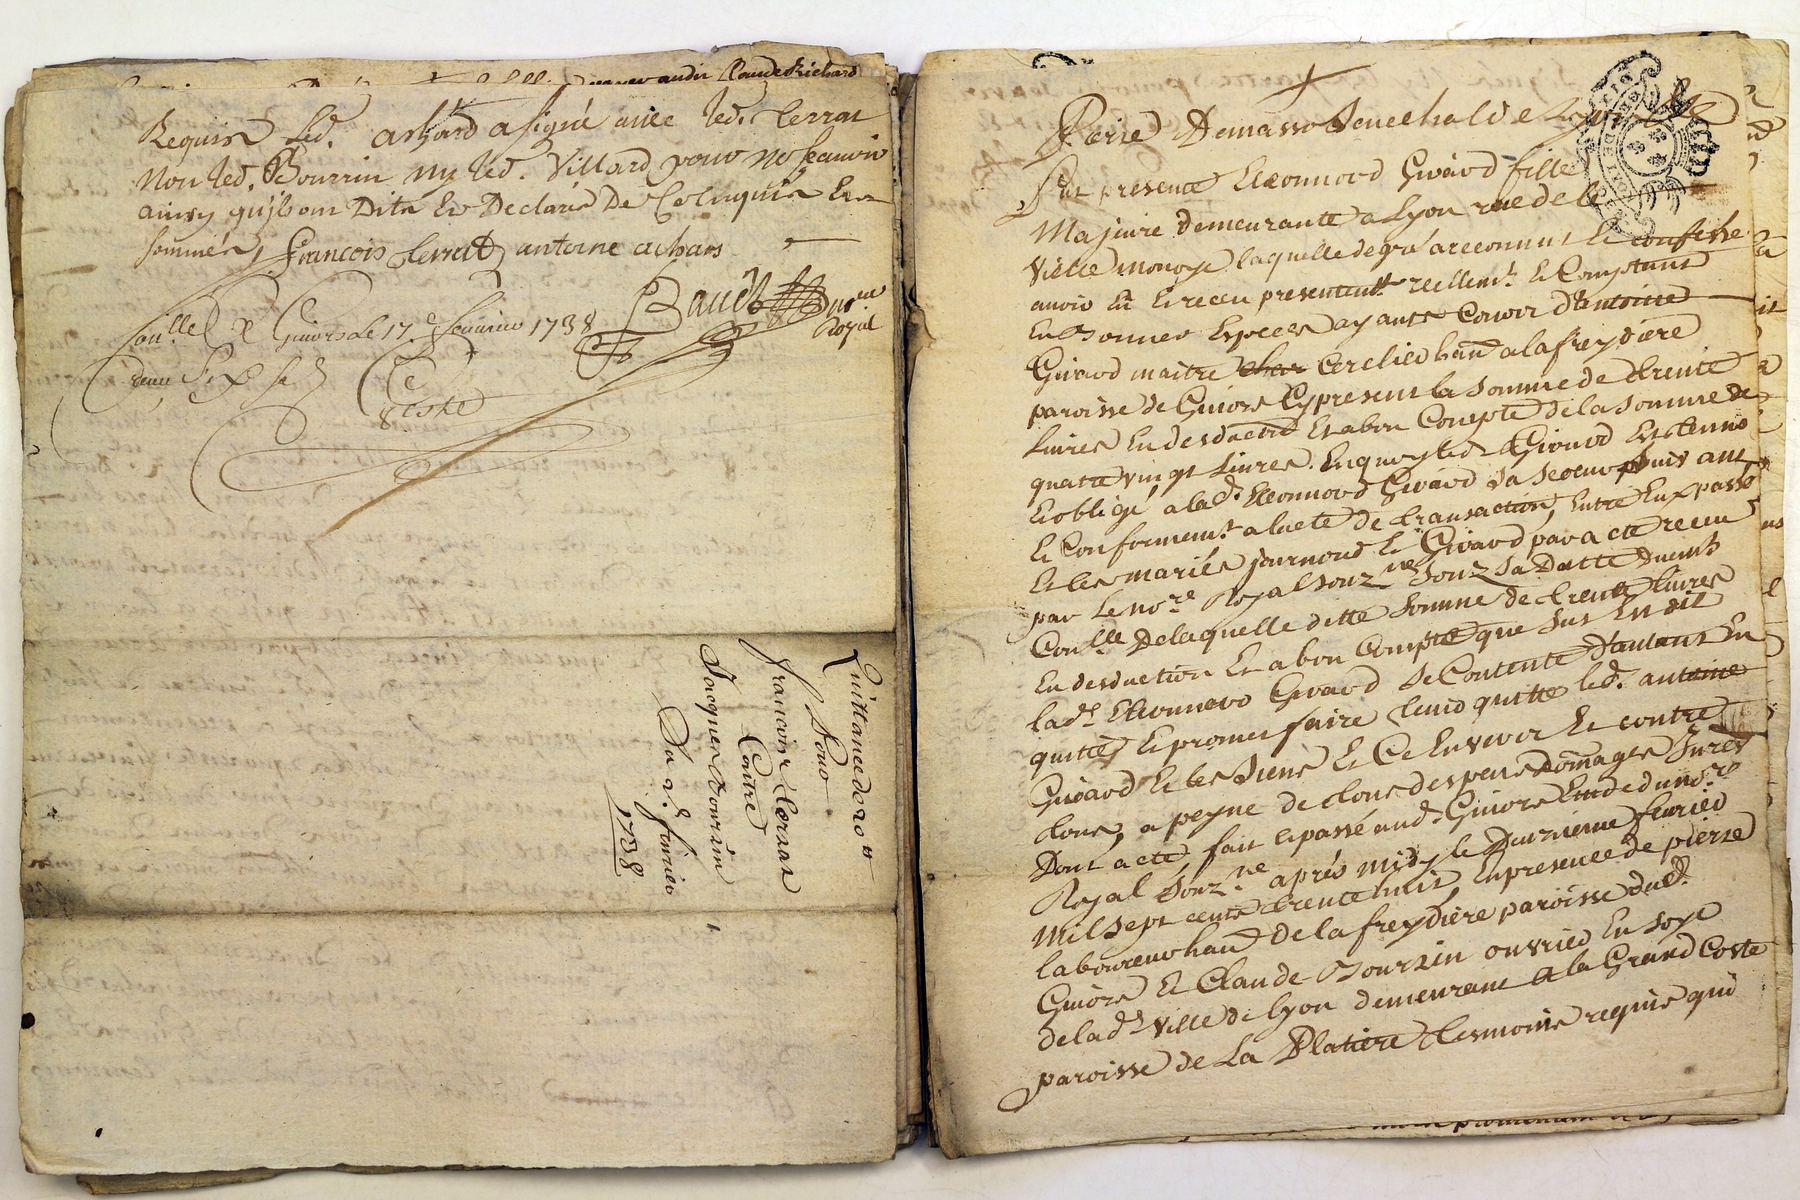 Claude Richard
Requis led. achard a signé avec led. Terrat
Non led. Bourrin ny led. Villard pour ne sçauoir
ainsy qu'ils ont Dit Et Declaré De Ce Enquis Et
sommés François Terrat antoine achars
Conllé a Givors le 17e feurier 1738
Reçu six s
Baudt nore Royal
Quittance de 20 tt
Pour
francois Terrat
Contre
Jacques Bourrin
Du 2e feurier
1738
Reiié Demasso Senechal de Lyon
Fut presente Eleonnord Girard fille
Majeure demeurante a Lyon rue de la
Vieille monoye laquelle de gré a reconnut Et confesse
auoir Eu Et receu presentemt. reellemt. Et Comptant
En Bonnes Especes ayants Cour d'antoine
Girard maitre char cerclier hant a la freydiere
paroisse de Giuors Cy present la somme de trente
Liures En desduction Et a bon Compte de la somme de
quatre vingt Liures. En quoy led. Girard Est tenu
Et obligé a lad. Eleonnord Girard sa soeur
Et Conformemt. a l'acte de transaction, Entre Eux passé
Et les mariés journoud Et Girard par acte receu
par Le nore. Royal souzne. souz sa Datte Duemt.
Conllé. De laquelle ditte somme de trente Liures
En desduction Et a bon Compte que sus Est dit
lad. Eleonnord Girard se Contente d'autant En
quitte, Et promet faire tenir quitte led. antoine
Girard Et les siens Et Ce Envers Et contre
tous, a peyne de tous despens domages Interets
Dont acte, fait Et passé aud. Giuors Etude du nore.
Royal souzne. après midy le Deuzieme feurier
Mil sept cents trente huit En presence de pierre
laboureur hant De la freydière paroisse dud.
Giuors Et Claude Bourrin ouurier En soye
de lad. Ville de Lyon demeurant a la Grand Coste
paroisse de La Platiere tesmoins requis qui